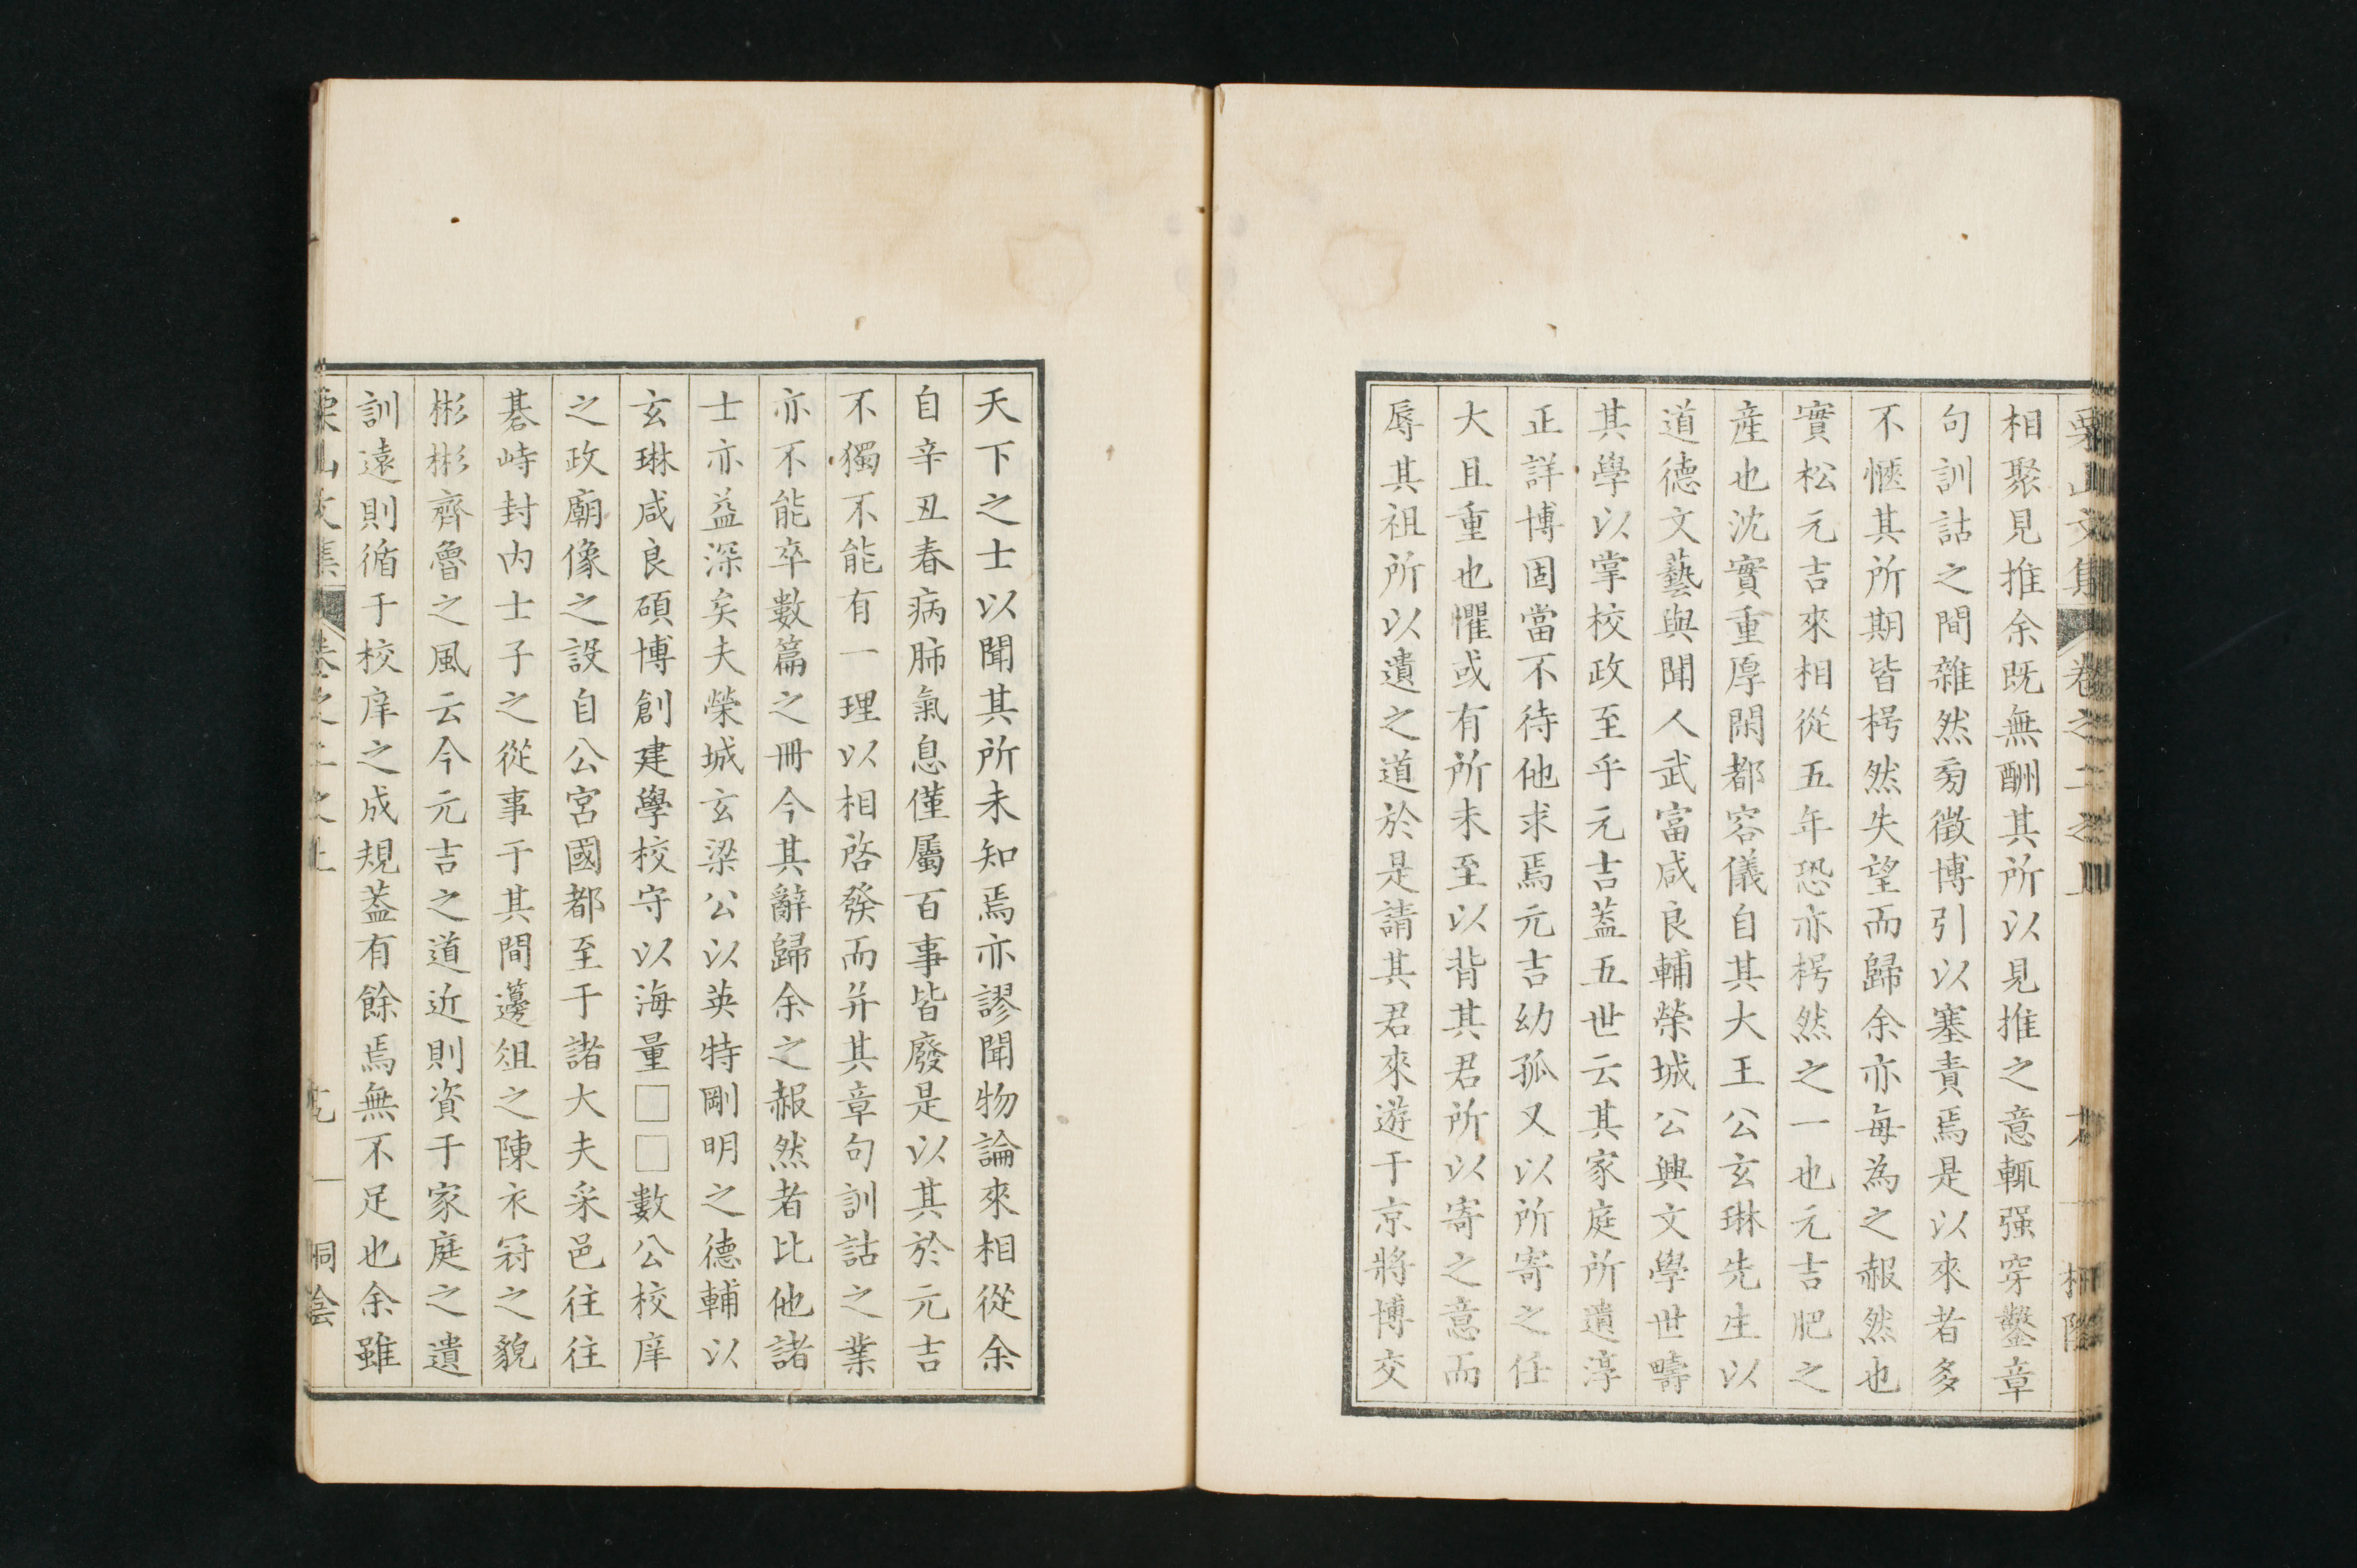 栗山文集 卷之二之上 桐陰
相聚見推余既無酬其所以見推之意輒强穿鑿章
句訓詁之間雜然旁徵博引以塞責焉是以來者多
不愜其所期皆枵然失望而歸余亦每為之赧然也
實松元吉來相從五年恐亦枵然之一也元吉肥之
産也沈實重厚閑都容儀自其大王公玄琳先生以
道德文藝與聞人武富咸良輔榮城公興文學世疇
其學以掌校政至乎元吉葢五世云其家庭所遺淳
正詳博固當不待他求焉元吉幼孤又以所寄之任
大且重也懼或有所未至以背其君所以寄之意而
辱其祖所以遺之道於是請其君來遊于京將博交
天下之士以聞其所未知焉亦謬聞物論來相從余
自辛丑春病肺氣息僅屬百事皆廢是以其於元吉
不獨不能有一理以相啓發而并其章句訓詁之業
亦不能卒數篇之冊今其辭歸余之赧然者比他諸
士亦益深矣夫榮城玄梁公以英特剛明之德輔以
玄琳咸良碩博創建學校守以海量□□數公校庠
之政廟像之設自公宮國都至于諸大夫采邑往往
碁峙封内士子之從事于其間籩俎之陳衣冠之貌
彬彬齊魯之風云今元吉之道近則資于家庭之遺
訓遠則循于校庠之成規葢有餘焉無不足也余雖
栗山文集 卷之二之上 九 桐陰